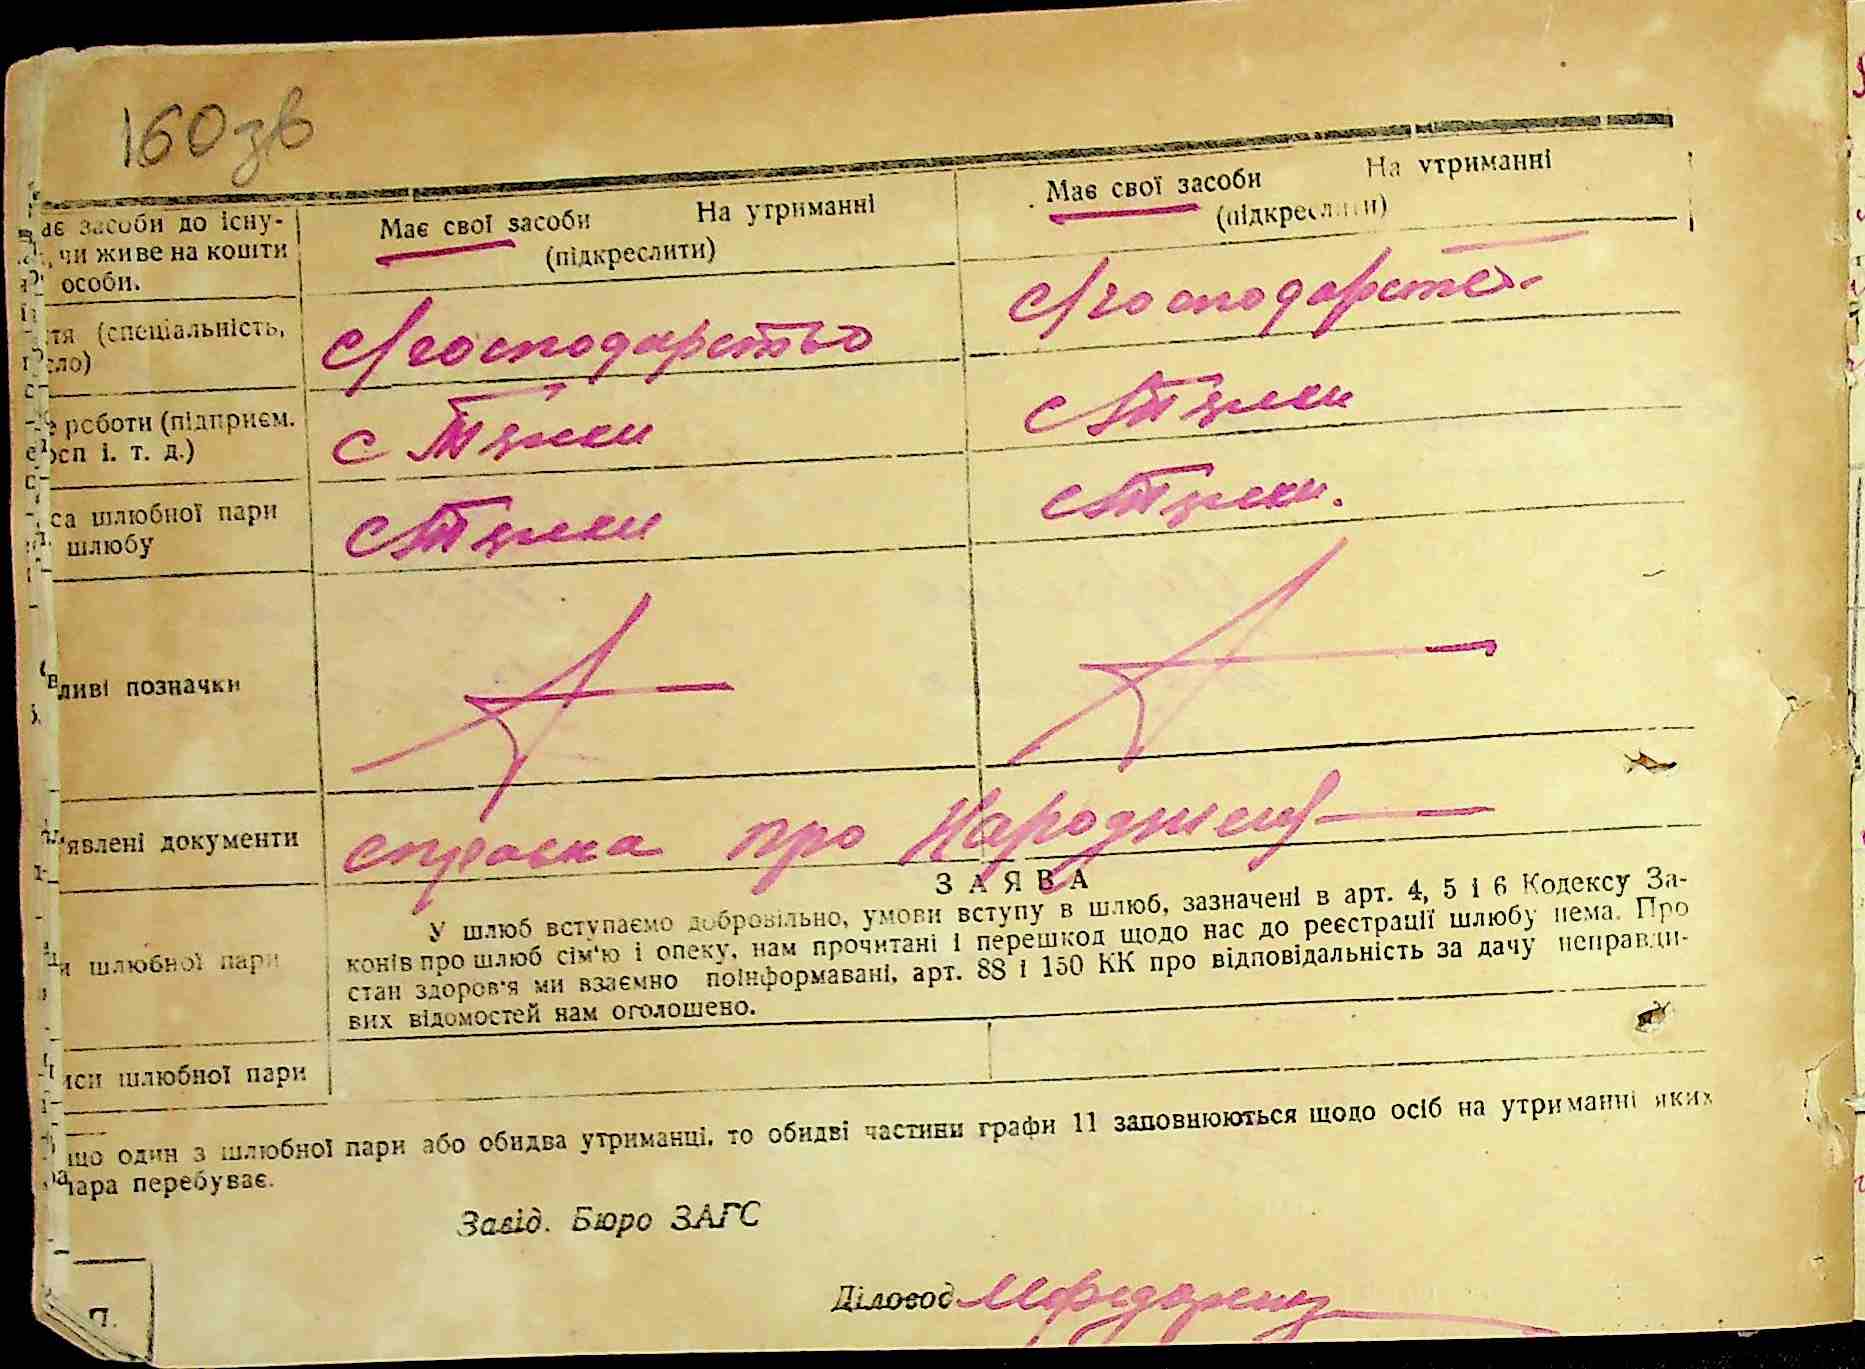 160 зв
ає засоби до існу- Має свої засоби На утриманні Має свої засоби На утриманні
чи живе на кошти (підкреслити) (підкреслити)
особи.
тя (спеціальність, с/господарство с/господарство
ло)
роботи (підприєм. с
осп і. т. д.)
са шлюбної пари
шлюбу
ливі позначки
явлені документи справка про
ЗАЯВА
У шлюб вступаємо добровільно, умови вступу в шлюб, зазначені в арт. 4, 5 і 6 Кодексу За-
конів про шлюб сім'ю і опеку, нам прочитані і перешкод щодо нас до реєстрації шлюбу нема. Про
и шлюбної пари стан здоров'я ми взаємно поінформавані, арт. 88 і 150 КК про відповідальність за дачу неправди-
вих відомостей нам оголошено.
иси шлюбної пари
що один з шлюбної пари або обидва утриманці, то обидві частини графи 11 заповнюються щодо осіб на утриманні яких
пара перебуває.
Завід. Бюро ЗАГС
Діловод
П.